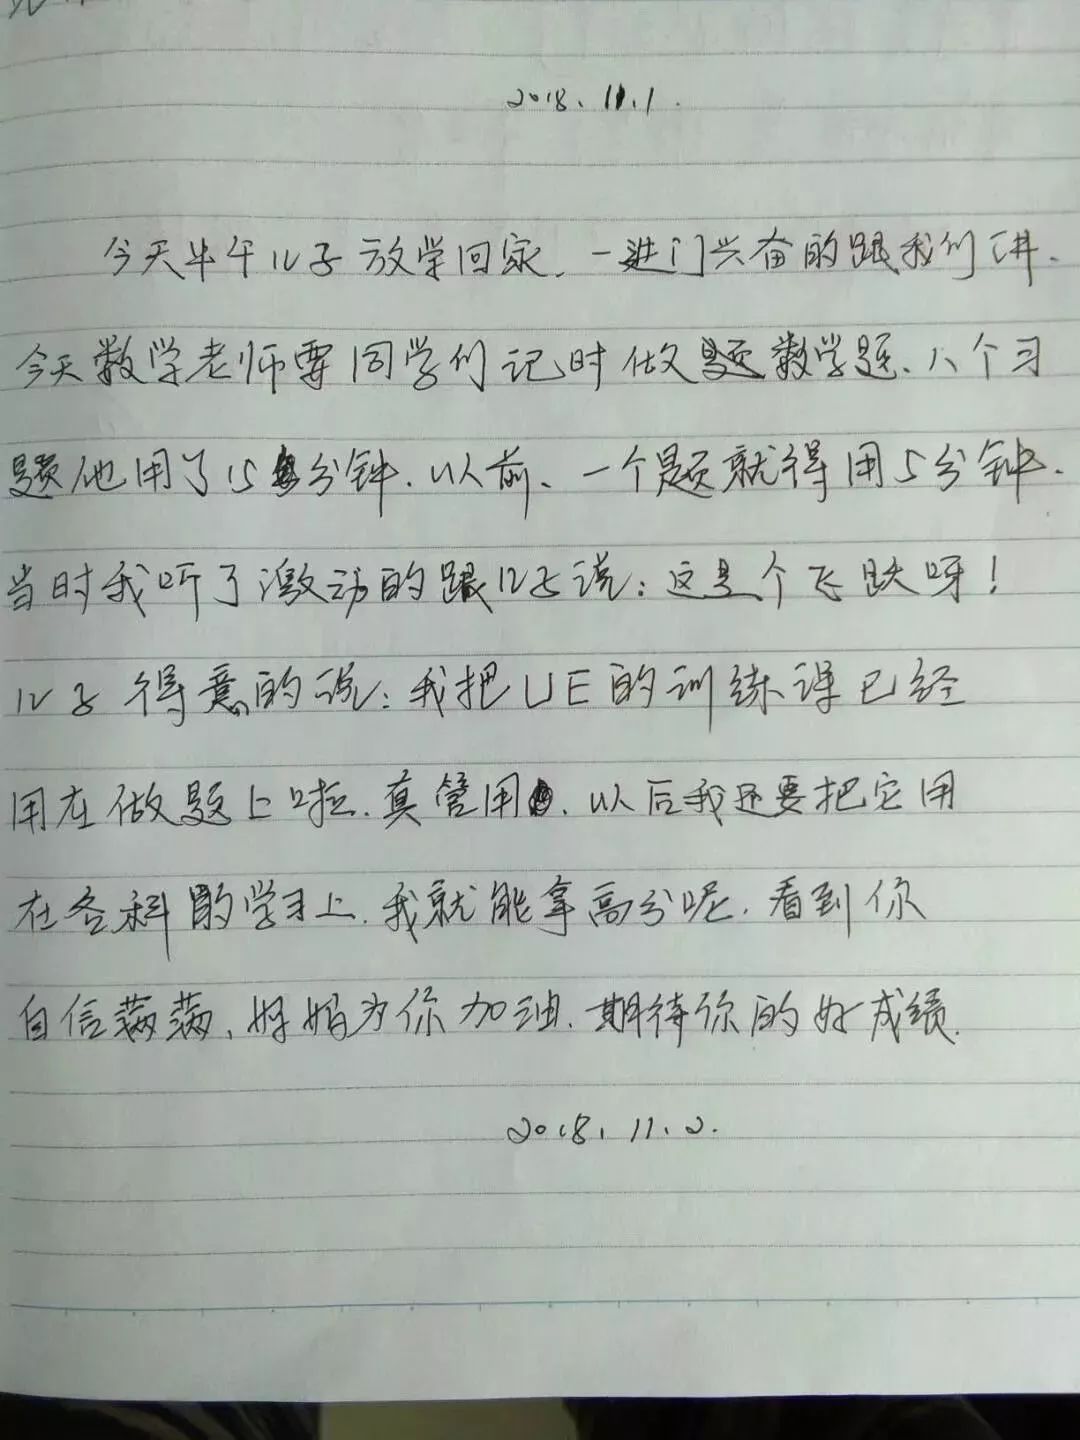 2018.11.1.
今天半午儿子放学回家.一进门兴奋的跟我们讲.
今天数学老师要同学们记时做题数学题.八个习
题他用了15分钟.以前、一个题就得用5分钟.
当时我听了激动的跟儿子说:这是个飞跃呀!
儿子得意的说:我把UE的训练课已经
用在做题上啦.真管用.以后我还要把它用
在各科的学习上.我就能拿高分呢.看到你
自信满满、妈妈为你加油.期待你的好成绩.
2018.11.2.